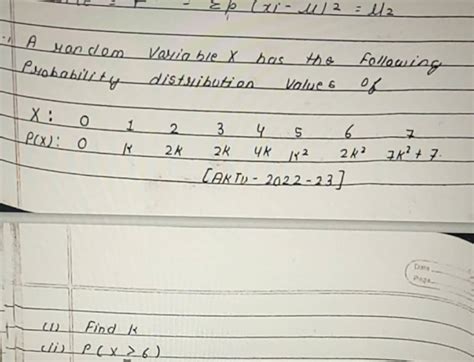 = Σp (xi - μ)2 = μ2
A random Variable X has the following
Probability distribution Values of
X: 0 1 2 3 4 5 6 7
P(X): 0 K 2K 2K 4K K² 2K² 7K² + 7.
[AKTU - 2022 - 23]
Date
Page
(i) Find K
(ii) P(X ≥ 6)